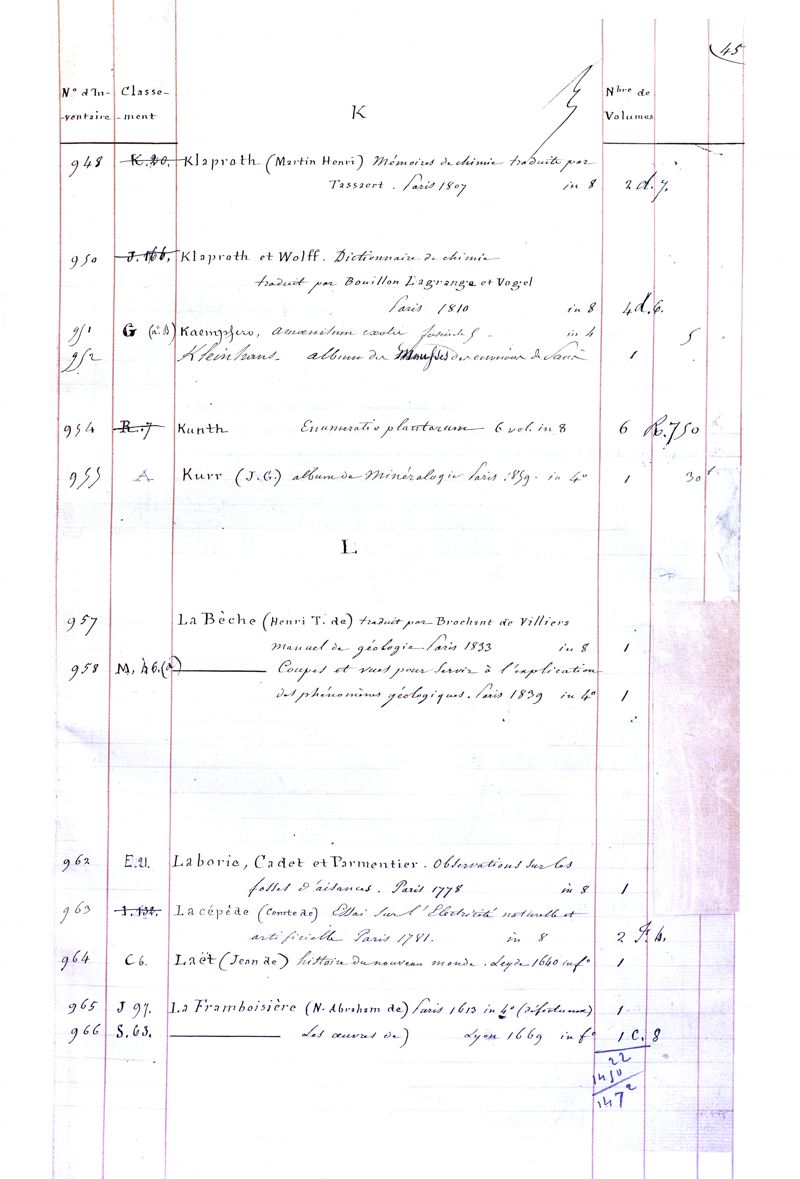 45
N° d'In- Classe- Nbre de
-ventaire -ment K Volumes
948 K.20. Klaproth (Martin Henri) Mémoires de chimie traduits par
Tassaert. Paris 1807 in 8 2 d.7.
950 J.166. Klaproth et Wolff. Dictionnaire de chimie
traduit par Bouillon Lagrange et Vogel
Paris 1810 in 8 4 d.6.
951 G Kaempfero, amoenitum in 4 5
952 Kleinhans. album des Mousses des environs de Paris 1
954 R.7 Kunth Enumeratio plantarum 6 vol. in 8 6 750
955 A Kurr (J.G.) album de Minéralogie Paris 1859. in 4° 1 30
L
957 La Bèche (Henri T. de) traduit par Brochant de Villiers
manuel de géologie. Paris 1833 in 8 1
958 M. 46.(a) Coupes et vues pour servir à l'explication
des phénomènes géologiques. Paris 1839 in 4° 1
962 E.21. Laborie, Cadet et Parmentier. Observations sur les
fosses d'aisances. Paris 1778 in 8 1
963 1.132. Lacépède (Comte de) Essai sur l'Electricité naturelle et
artificielle Paris 1781. in 8 2
964 C 6. Laët (Jean de) histoire du nouveau monde. Leyde 1640 in f° 1
965 J 97. La Framboisière (N. Abraham de) Paris 1613 in 4° (défectueux) 1
966 S.63. Les œuvres de) Lyon 1669 in f° 1 C. 8
22
1450
1472